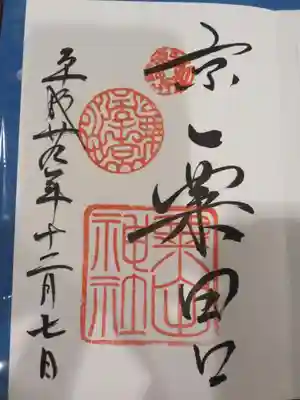 京一粟田口
粟田
神社
平成廿九年十二月七日